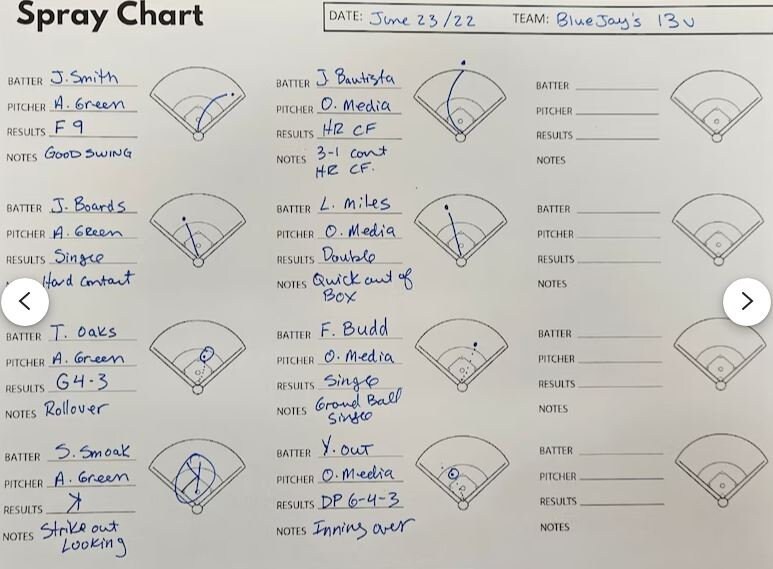 Spray Chart
DATE: June 23/22 TEAM: BlueJay's 13U
BATTER J. Smith
PITCHER A. Green
RESULTS F9
NOTES GOOD SWING
BATTER J. Boards
PITCHER A. Green
RESULTS Single
Hard Contact
BATTER T. Oaks
PITCHER A. Green
RESULTS G4-3
NOTES Rollover
BATTER S. Smoak
PITCHER A. Green
RESULTS ꓘ
NOTES Strike out
Looking
ꓘ
BATTER J Bautista
PITCHER O. Media
RESULTS HR CF
NOTES 3-1 count
HR CF.
BATTER L. Miles
PITCHER O. Media
RESULTS Double
NOTES Quick out of
Box
BATTER F. Budd
PITCHER O. Media
RESULTS Single
NOTES Ground Ball
Single
BATTER Y. OUT
PITCHER O. Media
RESULTS DP 6-4-3
NOTES Inning over
BATTER
PITCHER
RESULTS
NOTES
BATTER
PITCHER
RESULTS
NOTES
BATTER
PITCHER
RESULTS
NOTES
BATTER
PITCHER
RESULTS
NOTES